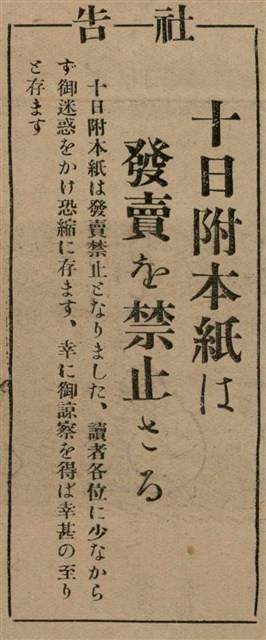 社告
十日附本紙は
發賣を禁止さる
十日附本紙は發賣禁止となりました、讀者各位に少なから
ず御迷惑をかけ恐縮に存ます、幸に御諒察を得ば幸甚の至り
と存ます